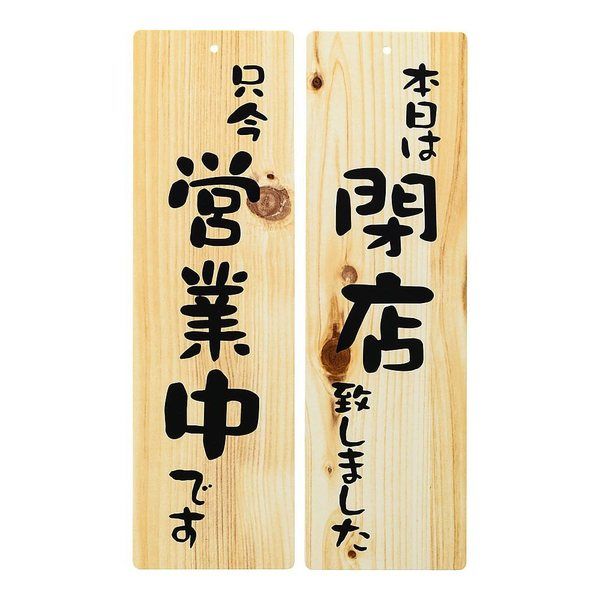 只今
営業中
です
本日は
閉店
致しました